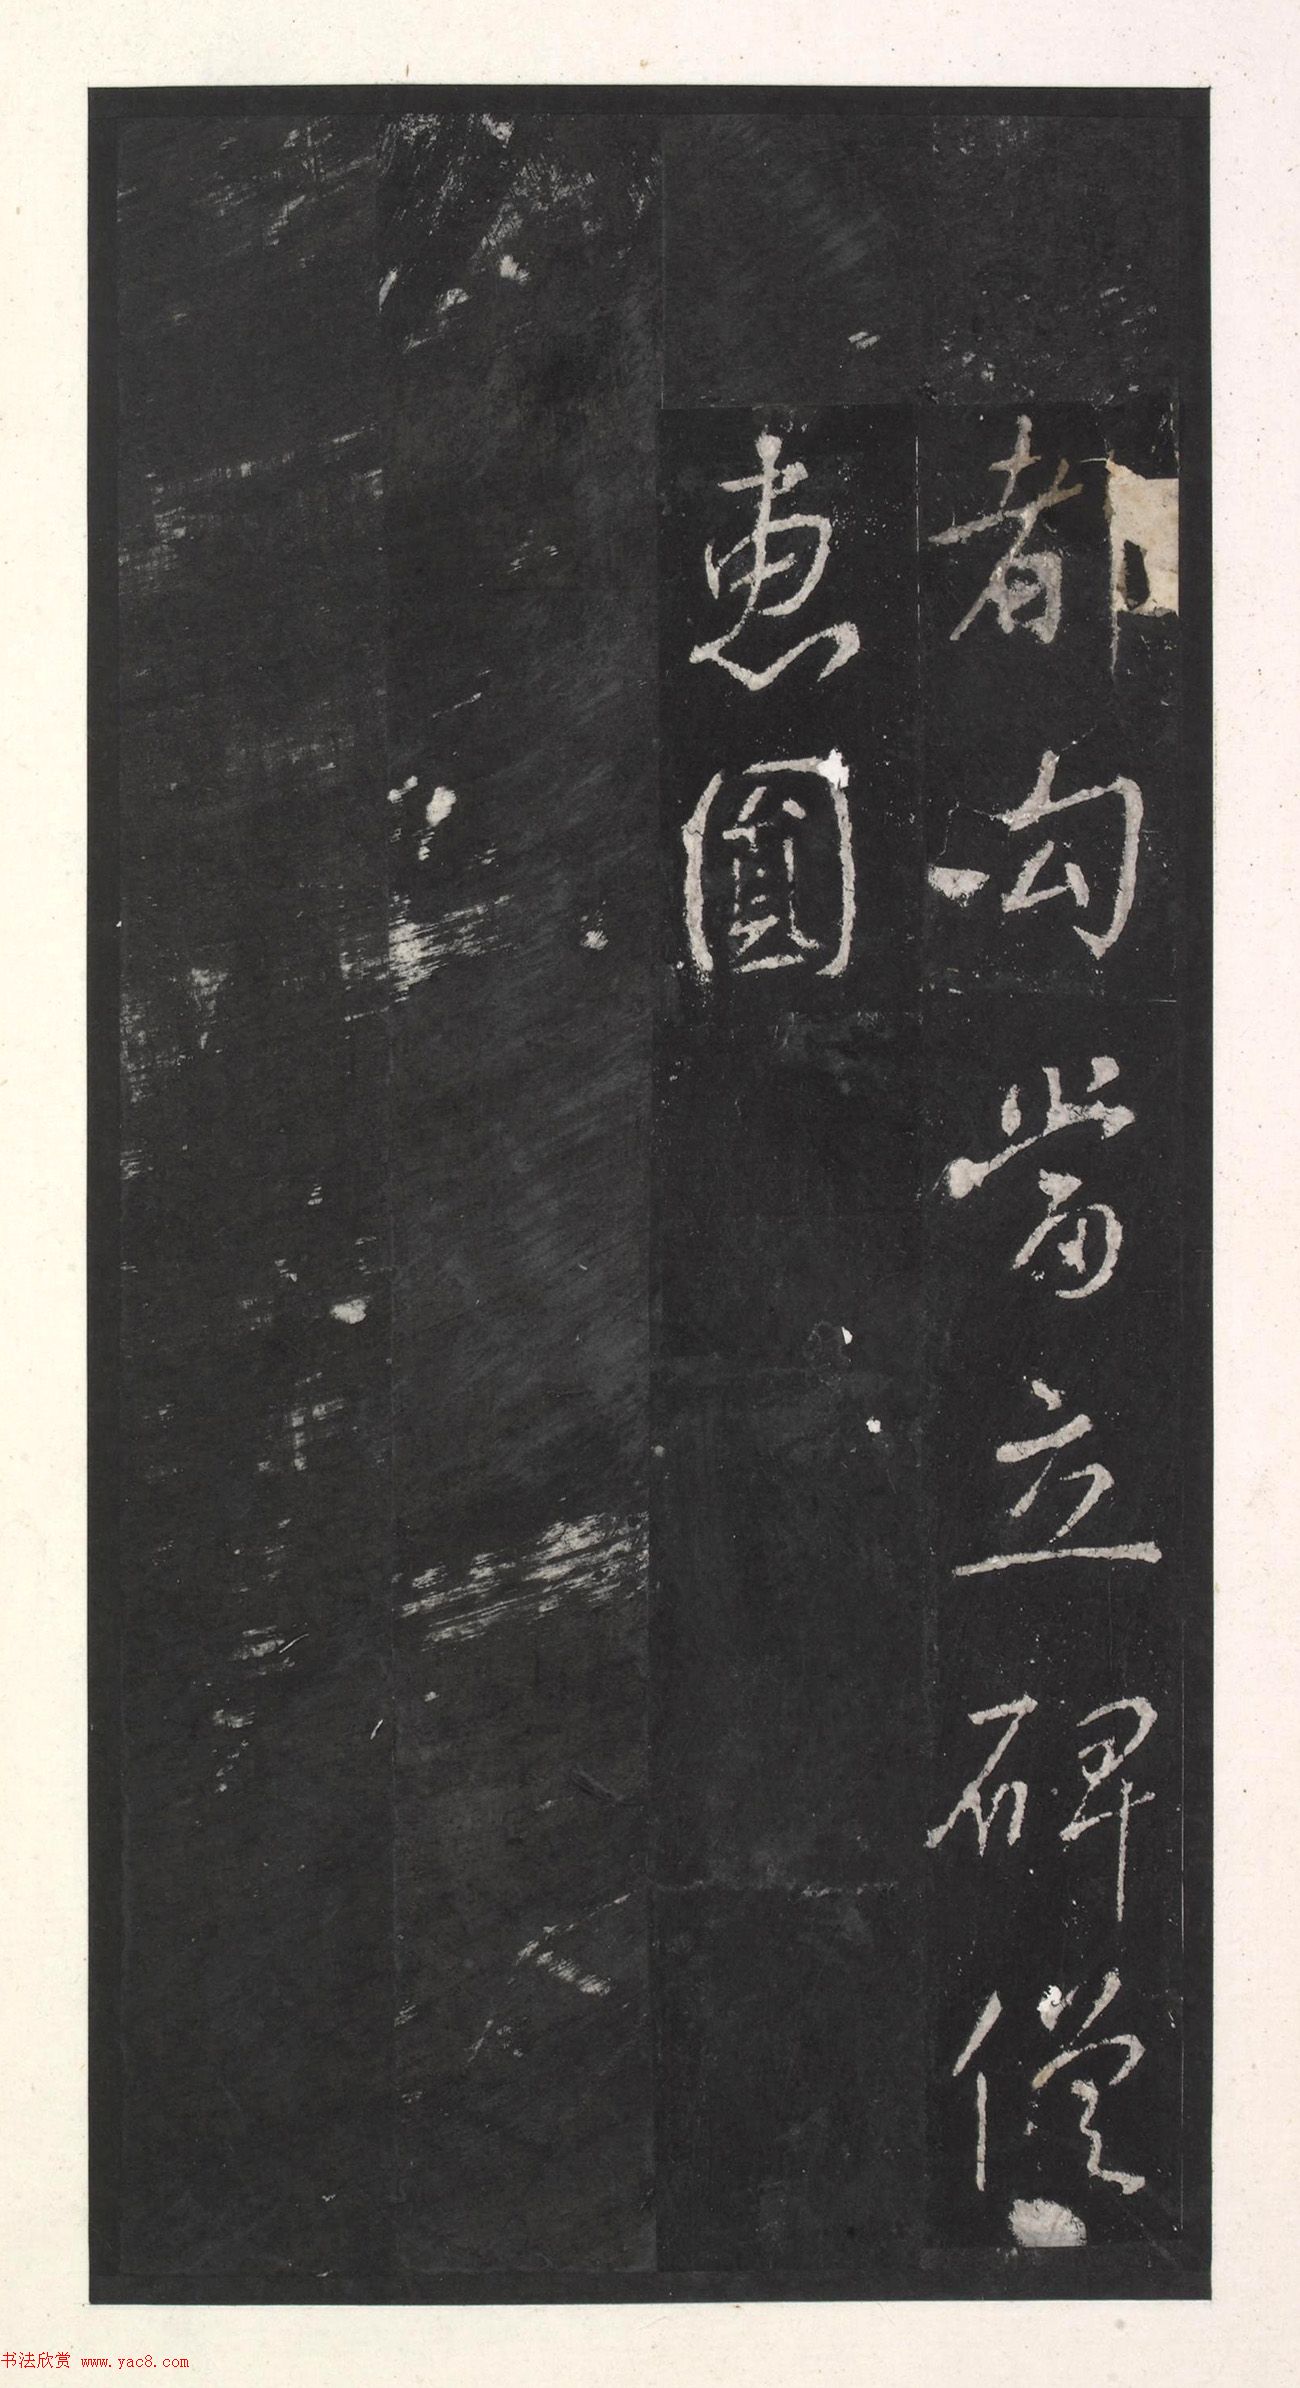 都勾當立碑僧
惠圓
书法欣赏 www.yac8.com